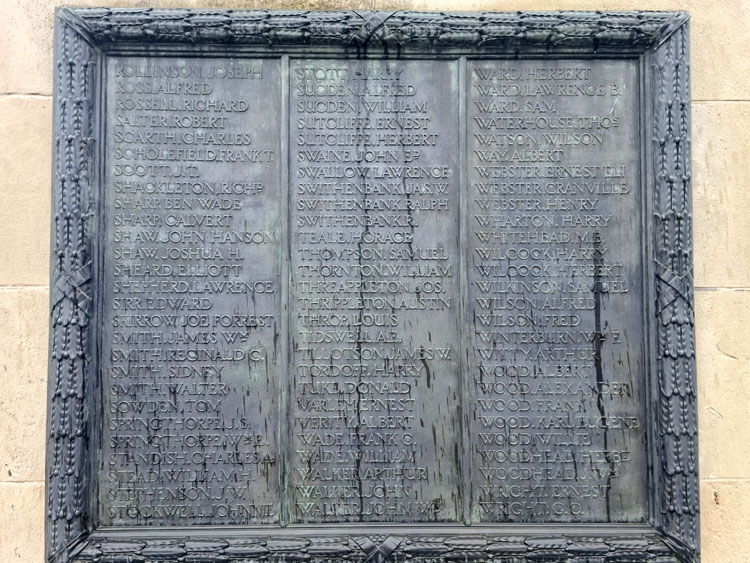 ROLLINSON, JOSEPH
ROSS, ALFRED
ROSSELL, RICHARD
SALTER, ROBERT
SCARTH, CHARLES
SCHOLEFIELD, FRANK T.
SCOTT, J.T.
SHACKLETON, RICHD
SHARP, BEN WADE
SHARP, CALVERT
SHAW, JOHN HANSON
SHAW, JOSHUA H.
SHEARD, ELLIOTT
SHEPHERD, LAWRENCE
SIRR, EDWARD
SKIRROW, JOE FORREST
SMITH, JAMES WM
SMITH, REGINALD C.
SMITH, SIDNEY
SMITH, WALTER
SOWDEN, TOM
SPRINGTHORPE, J.S.
SPRINGTHORPE, WM E.
STANDISH, CHARLES A.
STEAD, WILLIAM H.
STEPHENSON, J.W.
STOCKWELL, JOHNNIE
STOTT, HARRY
SUGDEN, ALFRED
SUGDEN, WILLIAM
SUTCLIFFE, ERNEST
SUTCLIFFE, HERBERT
SWAINE, JOHN ED
SWALLOW, LAWRENCE
SWITHENBANK, JAS. W.
SWITHENBANK, RALPH
SWITHENBANK, R.
TEALE, HORACE
THOMPSON, SAMUEL
THORNTON, WILLIAM
THREAPPLETON, JOS.
THRIPPLETON, AUSTIN
THROP, LOUIS
TIDSWELL, A.E.
TILLOTSON, JAMES W.
TORDOFF, HARRY
TUKE, DONALD
VARLEY, ERNEST
VERITY, ALBERT
WADE, FRANK C.
WADE, WILLIAM
WALKER, ARTHUR
WALKER, JOHN
WALLER, JOHN WM
WARD, HERBERT
WARD, LAWRENCE B.
WARD, SAM
WATERHOUSE, THOS
WATSON, WILSON
WAY, ALBERT
WEBSTER, ERNEST ELI
WEBSTER, GRANVILLE
WEBSTER, HENRY
WHARTON, HARRY
WHITEHEAD, M.B.
WILCOCK, HARRY
WILCOCK, HERBERT
WILKINSON, SAMUEL
WILSON, ALFRED
WILSON, FRED
WINTERBURN, WM F.
WITTY, ARTHUR
WOOD, ALBERT
WOOD, ALEXANDER
WOOD, FRANK
WOOD, KARL EUGENE
WOOD, WILLIE
WOODHEAD, HERBT
WOODHEAD, J. WM
WRIGHT, ERNEST
WRIGHT, G.C.